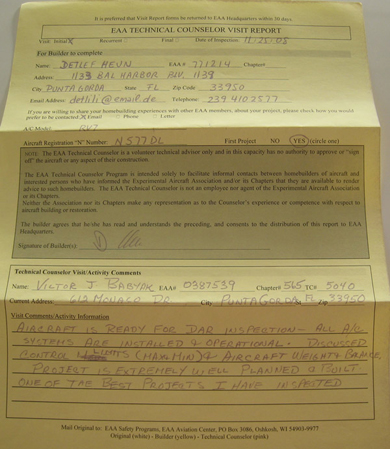 It is preferred that Visit Report forms be returned to EAA Headquarters within 30 days.
EAA TECHNICAL COUNSELOR VISIT REPORT
Visit: Initial X Recurrent Final Date of Inspection 11-25-05
For Builder to complete
Name: DETLEF HEUN EAA# 771214 Chapter#
Address: 1133 BAL HARBOR BLV. 1139
City PUNTA GORDA State FL Zip Code 33950
Email Address: Telephone 239 410 2577
If you are willing to share your homebuilding experiences with other EAA members, about your project, please check how you would
prefer to be contacted. Email Phone Letter
A/C Model
Aircraft Registration "N" Number N577DL First Project NO YES (circle one)
NOTE: The EAA Technical Counselor is a volunteer technical advisor only and in this capacity has no authority to approve or "sign
off" the aircraft or any aspect of their construction.
The EAA Technical Counselor Program is intended solely to facilitate informal contacts between homebuilders of aircraft and
interested persons who have informed the Experimental Aircraft Association and/or its Chapters that they are available to render
advice to such homebuilders. The EAA Technical Counselor is not an employee nor agent of the Experimental Aircraft Association
or its Chapters.
Neither the Association nor its Chapters make any representation as to the Counselor's experience or competence with respect to
aircraft building or restoration.
The builder agrees that he/she has read and understands the preceding, and consents to the distribution of this report to EAA
Headquarters.
Signature of Builder(s)
Technical Counselor Visit/Activity Comments
Name: VICTOR J BABYAK EAA# 0387539 Chapter# 565 TC# 5040
Current Address: 613 MONACO DR. City PUNTA GORDA FL Zip 33950
Visit Comments/Activity Information
AIRCRAFT IS READY FOR DAR INSPECTION - ALL A/C
SYSTEMS ARE INSTALLED & OPERATIONAL. DISCUSSED
CONTROL (MAX & MIN) & AIRCRAFT WEIGHT & BALANCE
PROJECT IS EXTREMELY WELL PLANNED & BUILT.
ONE OF THE BEST PROJECTS I HAVE INSPECTED
Mail Original to: EAA Safety Programs, EAA Aviation Center, PO Box 3086, Oshkosh, WI 54903-9977
Original (white) - Builder (yellow) - Technical Counselor (pink)